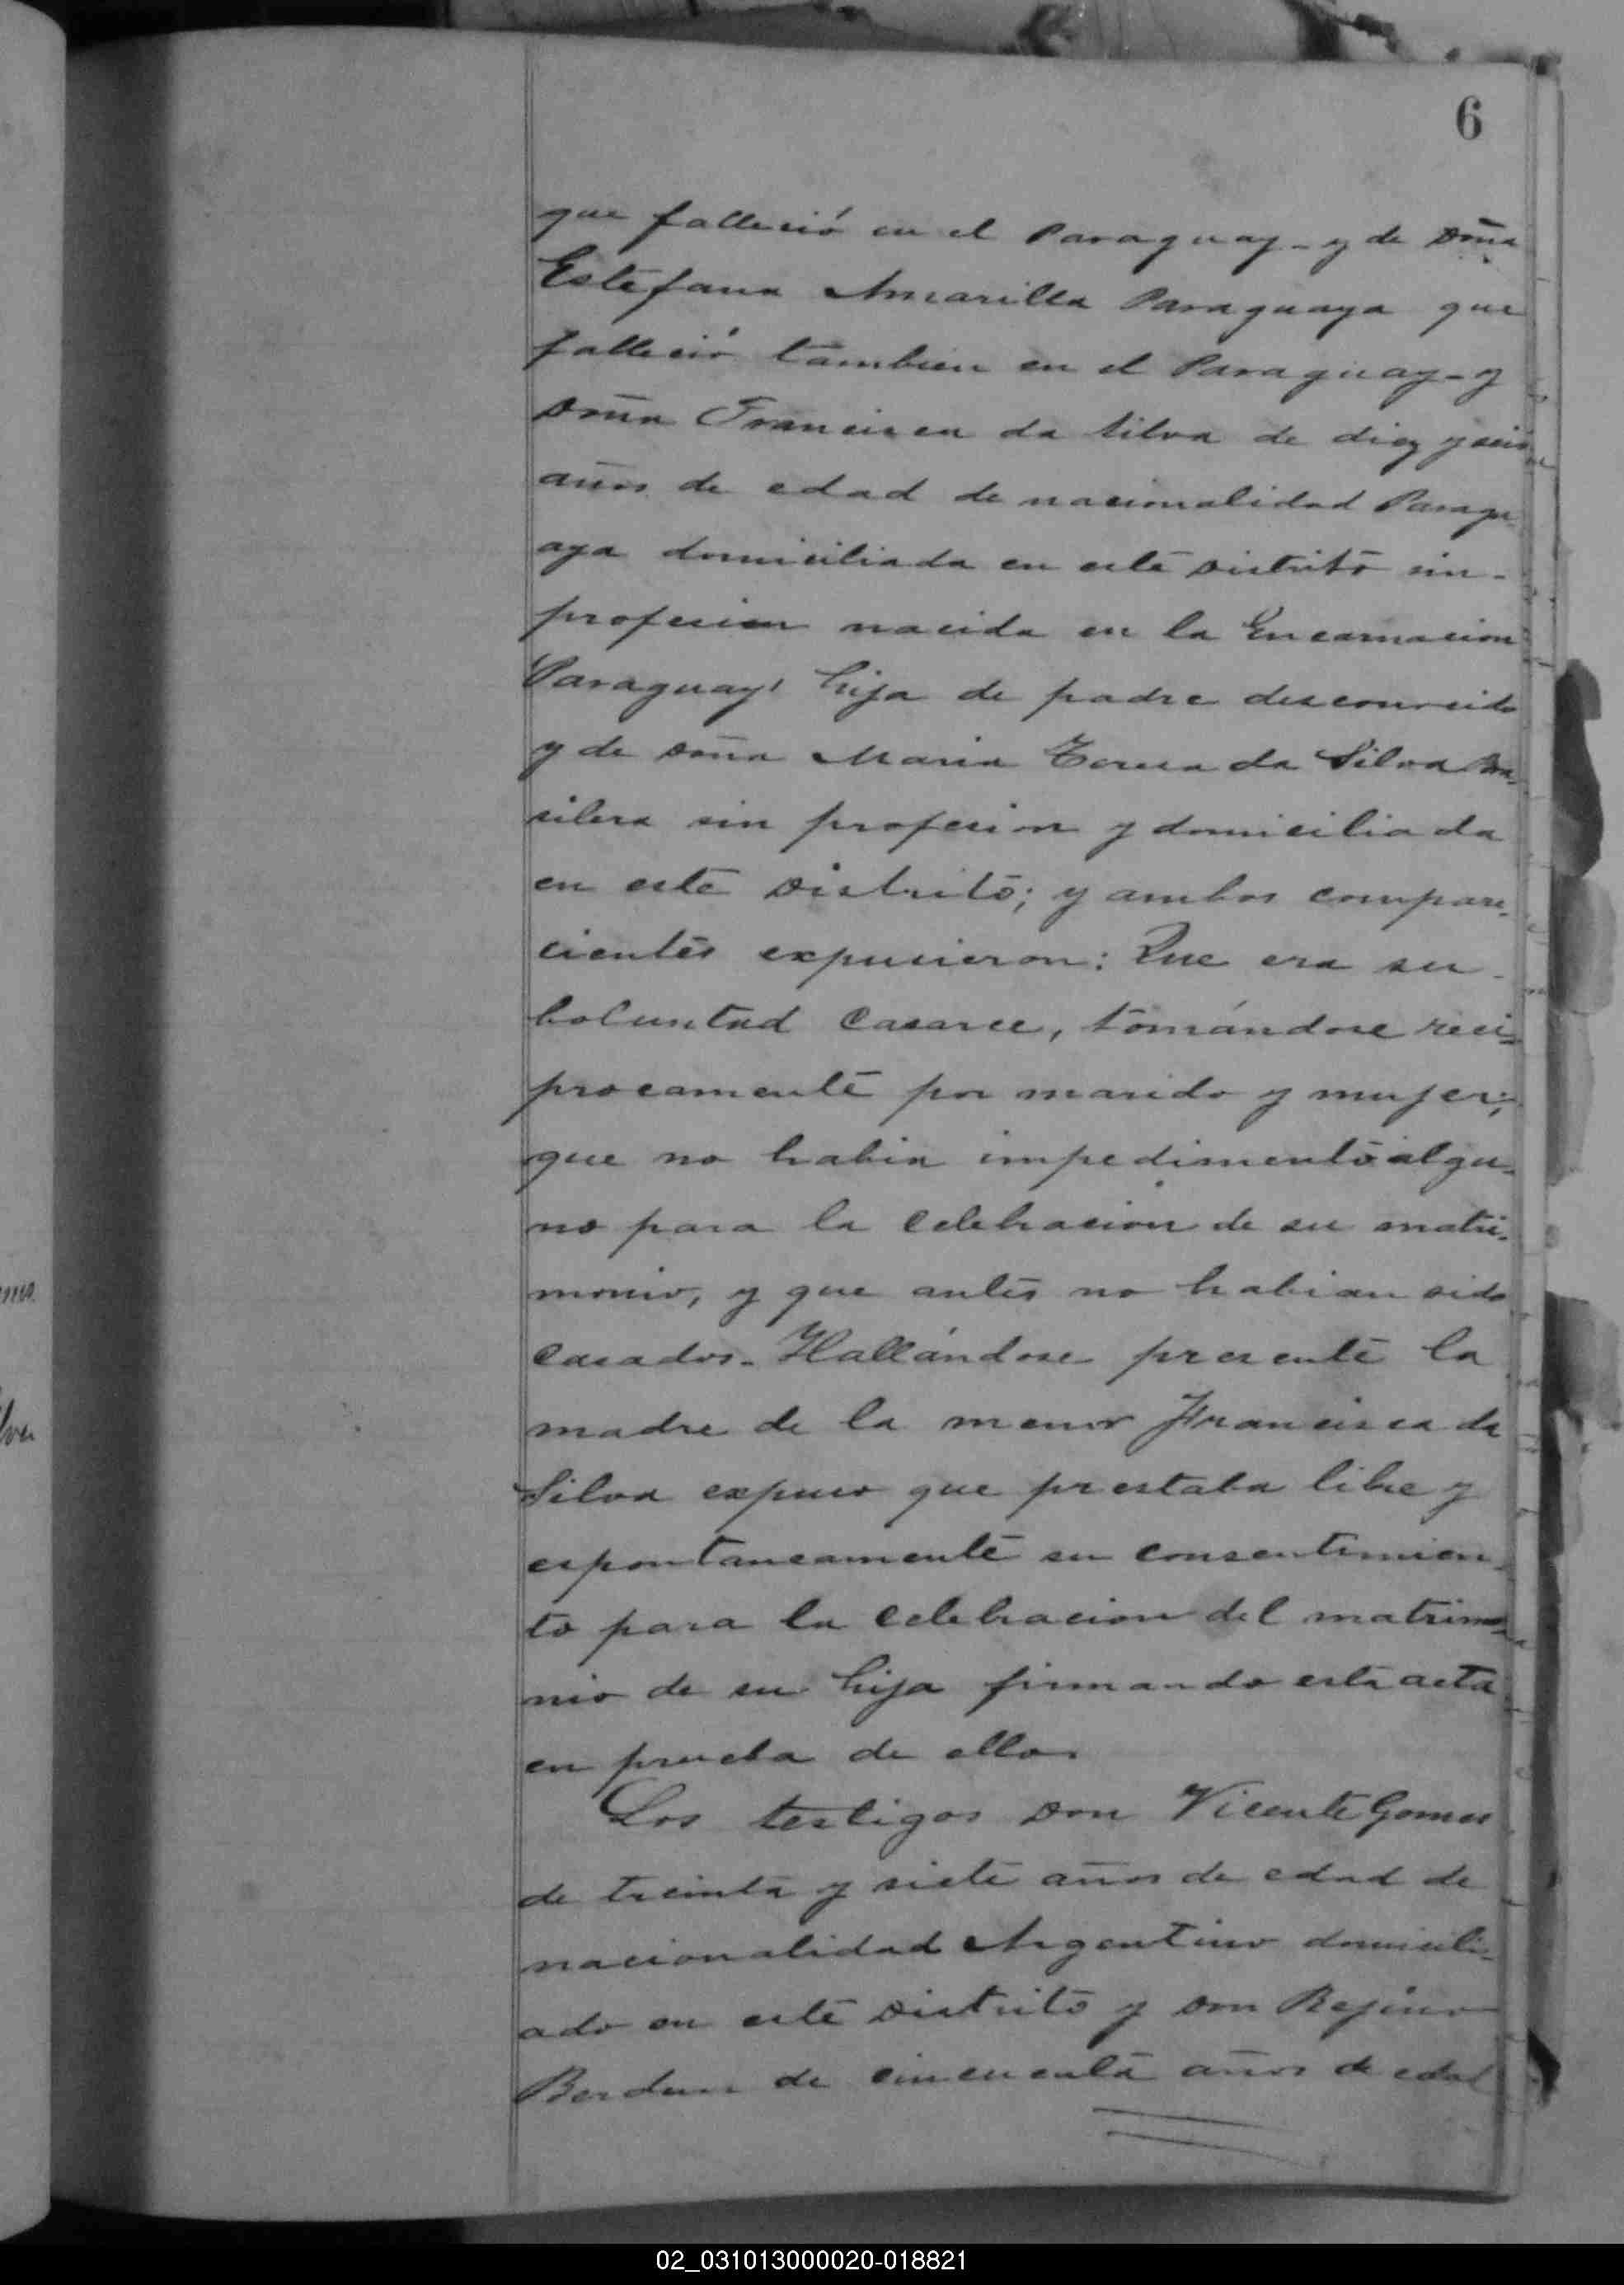 6
que falleció en el Paraguay - y de Doña
Estefana Amarilla Paraguaya que
falleció tambien en el Paraguay - y
Doña Francisca da Silva de diez y seis
años de edad de nacionalidad Paragu
aya domiciliada en este Distrito sin-
profesion nacida en la Encarnacion
Paraguay hija de padre desconocido
y de Doña Maria Teresa da Silva Bra-
silera sin profesion y domiciliada
en este Distrito; y ambos compare-
cientes expusieron: Que era su-
boluntad casarce, tomándose reci-
procamente por marido y mujer;
que no habia impedimento algu-
no para la celebracion de su matri-
monio, y que antes no habian sido
casados. Hallándose presente la
madre de la menor Francisca da
Silva expuso que prestaba libre y
espontaneamente su consentimien-
to para la celebracion del matrimo-
nio de su hija firmando esta acta
en prueba de ello.
Los testigos Don Vicente Gomes
de treinta y siete años de edad de
nacionalidad Argentino domicili-
ado en este Distrito y Don Rejino
Berdun de cincuenta años de edad
02_031013000020-018821